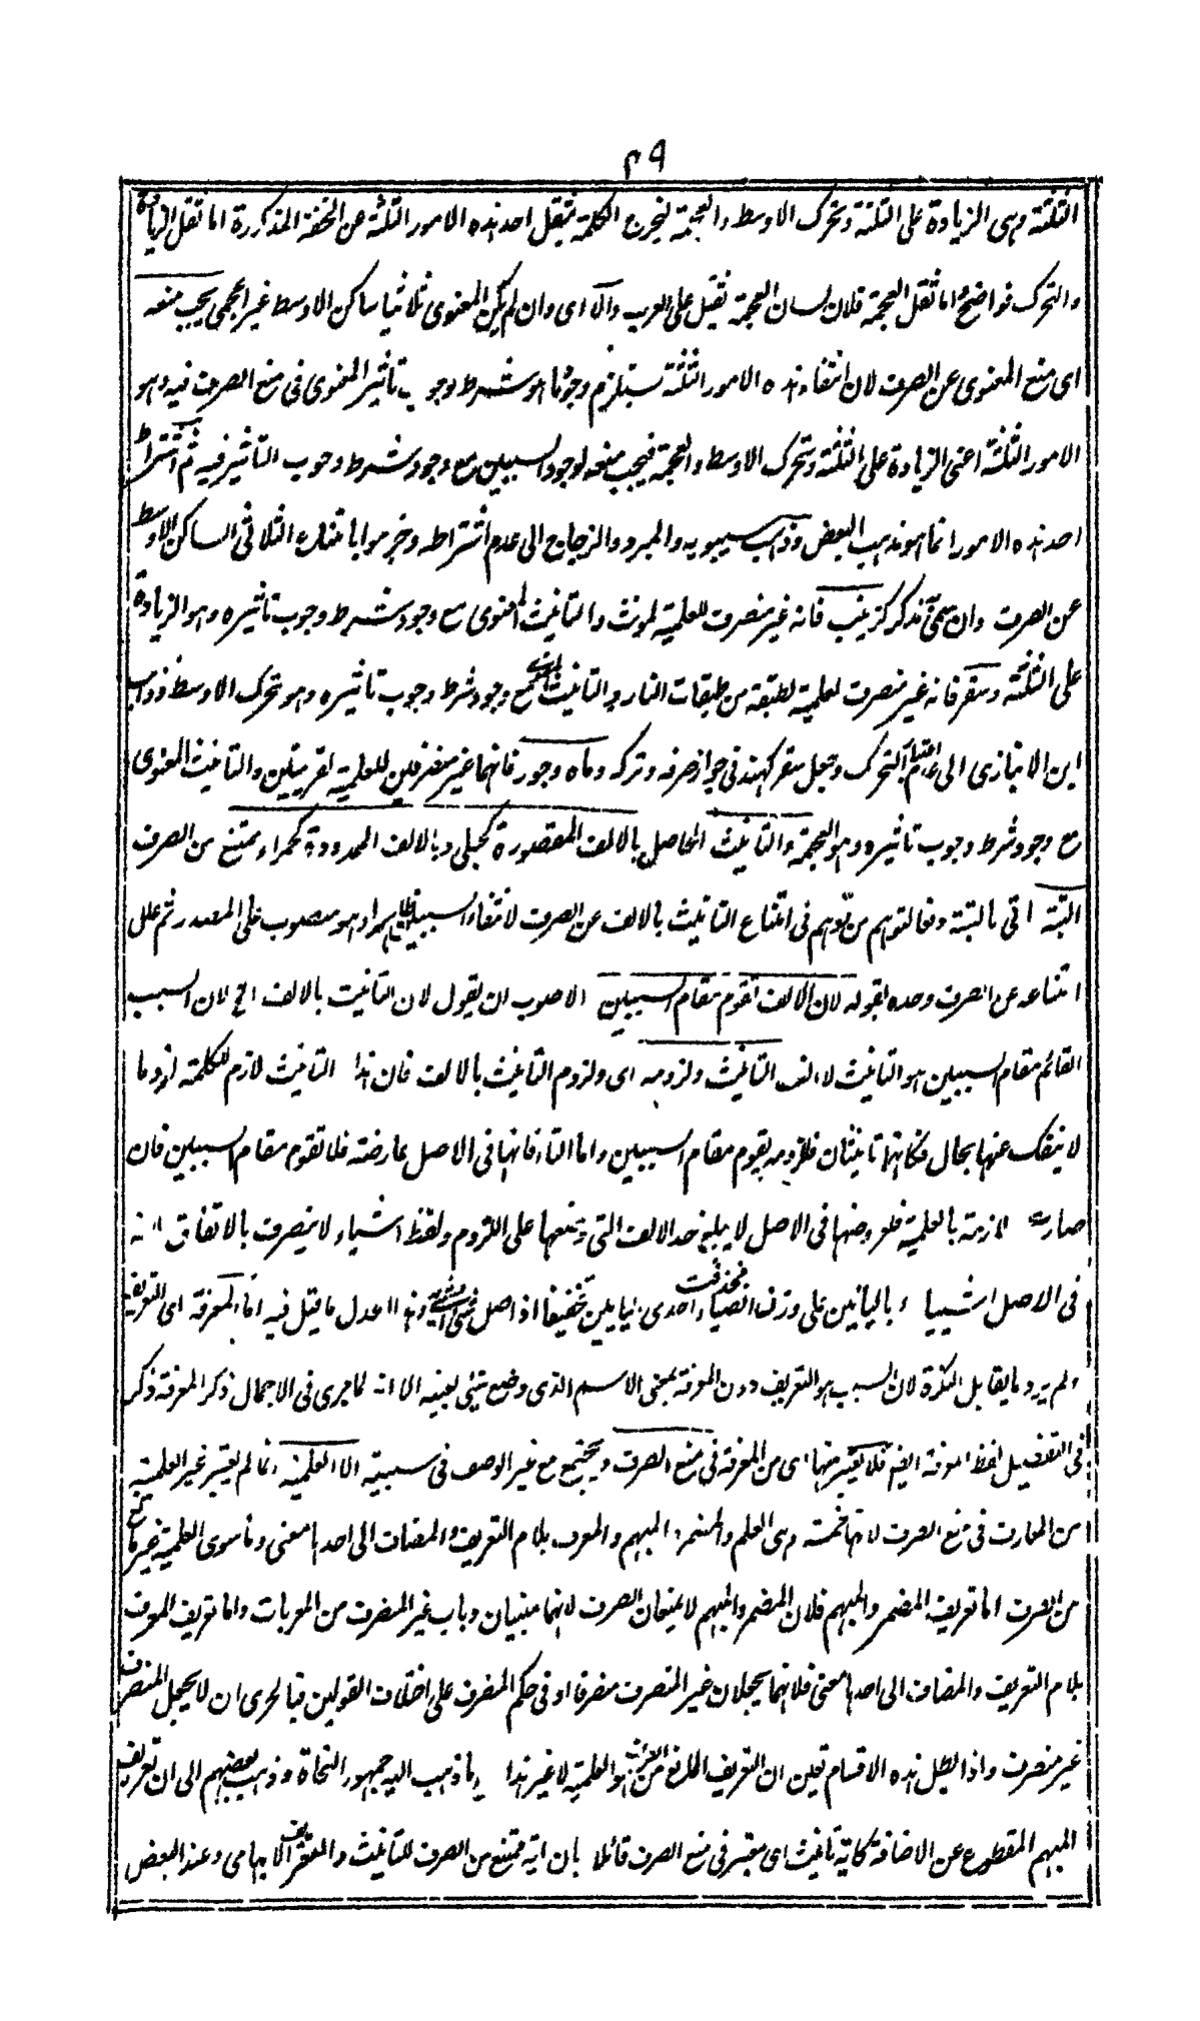 ٢٩
الثلثة وهى الزيادة على الثلثة وتحرك الاوسط والعجمة ليخرج الكلمة بثقل احد هذه الامور الثلثة عن الخفة المذكورة اما ثقل الزيادة
والتحرك فواضح واما ثقل العجمة فلان لسان العجمة ثقيل على العرب والا اى وان لم يكن المعنوى ثلاثيا ساكن الاوسط غير اعجمى يجب منعه
اى منع المعنوى عن الصرف لان انتفاء هذه الامور الثلثة يستلزم وجود ما هو شرط وجوب تاثير المعنوى فى منع الصرف فيه وهو
الامور الثلثة اعنى الزيادة على الثلثة وتحرك الاوسط والعجمة فيجب منعه لوجود السببين مع وجود شرط وجوب التاثير فيه ثم اشتراط
احد هذه الامور انما هو مذهب البعض وذهب سيبويه والمبرد والزجاج الى عدم اشتراطه وخرموا بامتناع الثلاثى الساكن الاوسط
عن الصرف وان سمى مذكر كزينب فانه غير منصرف للعلمية لمونث والتانيث المعنوى مع وجود شرط وجوب تاثيره وهو الزيادة
على الثلثة وسقر فانه غير منصرف لعلمية لطبقة من طبقات النار والتانيث المعنوى مع وجود شرط وجوب تاثيره وهو تحرك الاوسط وذهب
ابن الانبازى الى عدم اعتبار التحرك وجعل سقر كهند فى جواز صرفه وتركه وماه وجور فانهما غير منصرفين للعلمية لقريتين والتانيث المعنوى
مع وجود شرط وجوب تاثيره وهو العجمة والتانيث الحاصل بالالف المقصورة كحبلى وبالالف الممدودة كحمراء يمتنع من الصرف
البتة اتى بالبتة دفعا لتوهم من توهم فى امتناع التانيث بالالف عن الصرف لانتفاء السببين ظاهرا وهو منصوب على المصدر ثم علل
امتناعه عن الصرف وحده بقوله لان الالف تقوم مقام السببين الاصوب ان يقول لان التانيث بالالف الخ لان السبب
القائم مقام السببين هو التانيث لا الف التانيث ولزومه اى ولزوم التانيث بالالف فان هذا التانيث لازم للكلمة لزوما
لا ينفك عنها بحال فكانها تانيثان فلزومه يقوم مقام السببين واما التاء فانها فى الاصل عارضة فلا تقوم مقام السببين فان
صارت لازمة بالعلمية فعروضها فى الاصل لا يبلغ حد الالف التى وضعها على اللزوم ولفظ اشياء لا ينصرف بالاتفاق لانه
فى الاصل اشيياء باليائين على وزن انصباء فحذفت احدى اليايين تخفيفا اذ اصل وهذا اعدل ما قيل فيه اما المعرفة اى التعريف
ولم يرد ما يقابل النكرة لان السبب هو التعريف دون المعرفة بمعنى الاسم الذى وضع لشئ بعينه الا انه لما جرى فى الاجمال ذكر المعرفة ذكر
فى التفصيل لفظ المعرفة ايضا فلا يعتبر منها اى من المعرفة فى منع الصرف ويجتمع مع غير الوصف فى سببية الا العلمية انما لم يعتبر غير العلمية
من المعارف فى منع الصرف لانها خمسة وهى العلم والمضمر والمبهم والمعرف بلام التعريف والمضاف الى احدها معنى وما سوى العلمية غير مانع
من الصرف اما تعريف المضمر والمبهم فلان المضمر والمبهم لا يمنعان الصرف لانهما مبنيان وباب غير المنصرف من المعربات واما تعريف المعرف
بلام التعريف والمضاف الى احدها معنى فلانهما يجعلان غير المنصرف منصرفا او فى حكم المنصرف على اختلاف القولين فبالحرى ان لا يجعل المنصرف
غير منصرف واذا بطل هذه الاقسام تعين ان التعريف المانع من الصرف هو العلمية لا غير هذا ما ذهب اليه جمهور النحاة وذهب بعضهم الى ان تعريف
المبهم المقطوع عن الاضافة كاية تانيث اى معتبر فى منع الصرف قائلا بان اية ممتنع من الصرف للتانيث والتعريف الابهامى وعند البعض